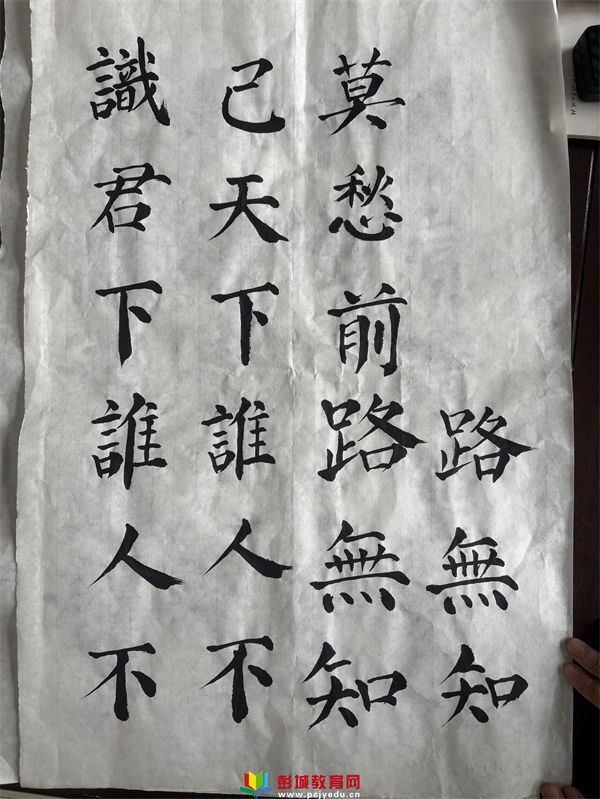 路無知
莫愁前路無知
己天下誰人不
識君下誰人不
彭城教育网
www.pcjyedu.cn